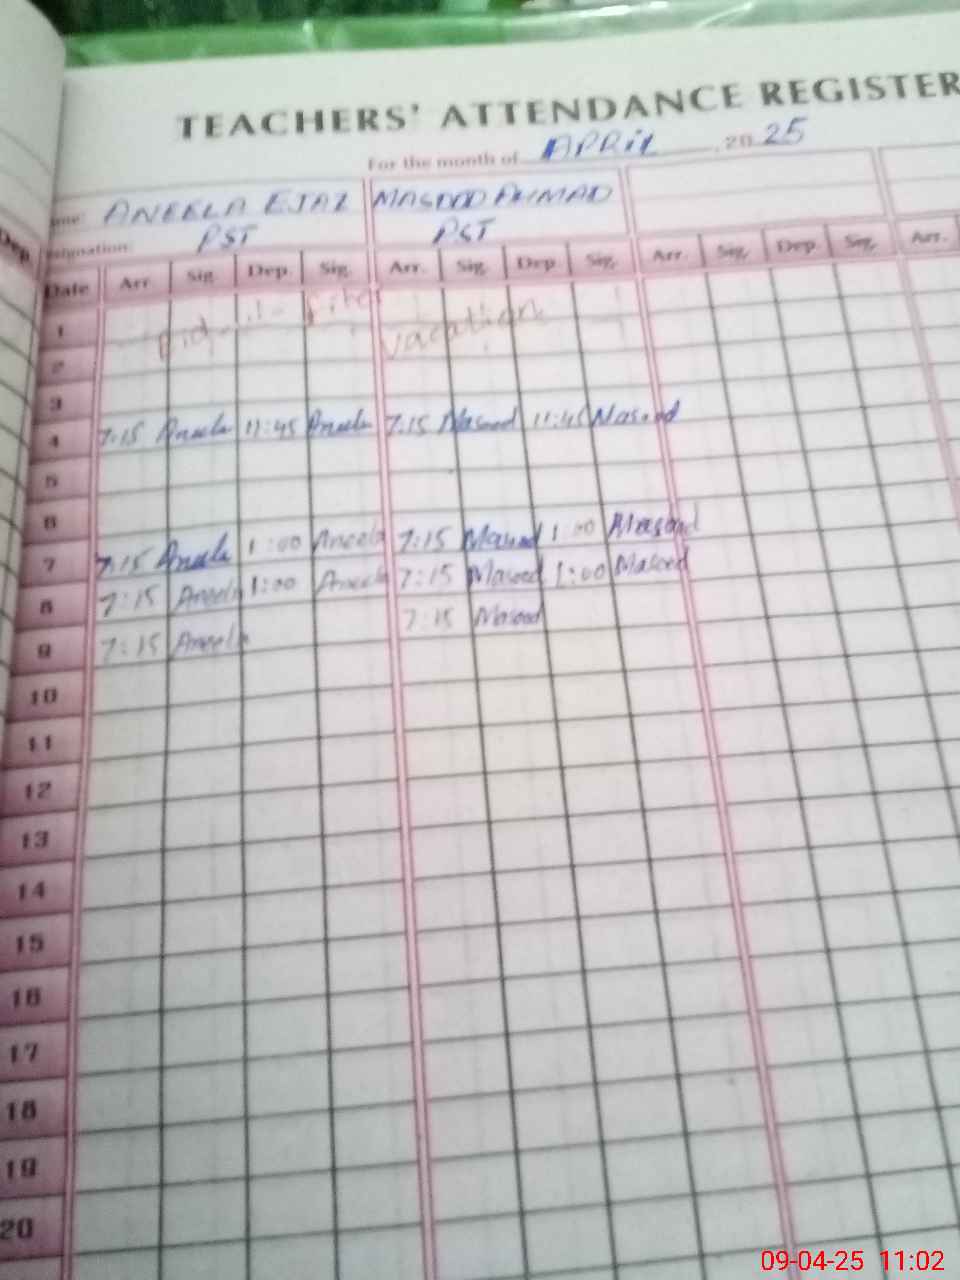 TEACHERS' ATTENDANCE REGISTER
For the month of APRIL, 2025
ANEELA EJAZ MASOOD AHMAD
Designation: PST PST
Date Arr. Sig. Dep. Sig. Arr. Sig. Dep. Sig. Arr. Sig. Dep. Sig. Arr.
1 Eid-ul-fiter vacation
2
3
4 7:15 Aneela 11:45 Aneela 7:15 Masood 11:45 Masood
5
6
7 7:15 Aneela 1:00 Aneela 7:15 Masood 1:00 Masood
8 7:15 Aneela 1:00 Aneela 7:15 Masood 1:00 Masood
9 7:15 Aneela 7:15 Masood
10
11
12
13
14
15
16
17
18
19
20
09-04-25 11:02